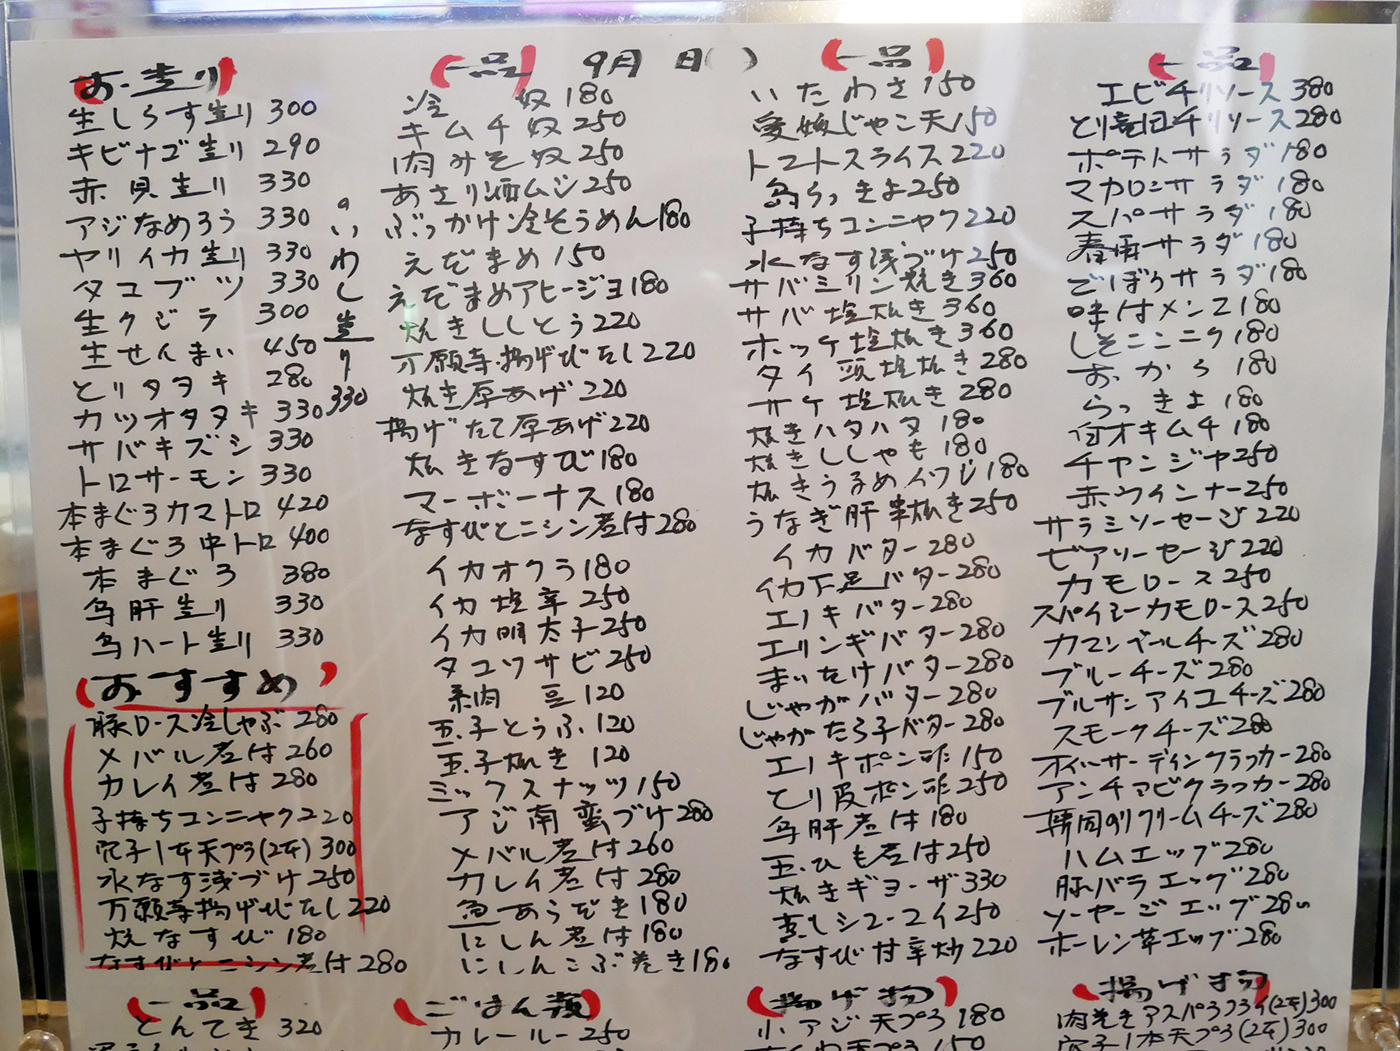 お造り
生しらす造り 300
キビナゴ造り 290
赤貝造り 330
アジなめろう 330
ヤリイカ造り 330
タコブツ 330
生クジラ 300
生せんまい 450
とりタタキ 280
カツオタタキ 330
サバキズシ 330
トロサーモン 330
本まぐろカマトロ 420
本まぐろ中トロ 400
本まぐろ 380
鳥肝造り 330
鳥ハート造り 330
いわし造り 330
おすすめ
豚ロース冷しゃぶ 280
メバル煮付 260
カレイ煮付 280
子持ちコンニャク 220
穴子1本天プラ(2本) 300
水なす浅づけ 250
万願寺揚げびたし 220
焼なすび 180
なすびとニシン煮付 280
一品
とんてき 320
一品 9月 日( )
冷奴 180
キムチ奴 250
肉みそ奴 250
あさり酒ムシ 250
ぶっかけ冷そうめん 180
えだまめ 150
えだまめアヒージョ 180
焼きししとう 220
万願寺揚げびたし 220
焼き厚あげ 220
揚げたて厚あげ 220
焼きなすび 180
マーボーナス 180
なすびとニシン煮付 280
イカオクラ 180
イカ塩辛 250
イカ明太子 250
タコワサビ 250
蒸肉豆 120
玉子とうふ 120
玉子焼き 120
ミックスナッツ 150
アジ南蛮づけ 280
メバル煮付 260
カレイ煮付 280
魚あらだき 180
にしん煮付 180
にしんこぶ巻き 180
ごはん類
カレールー 250
一品
いたわさ 150
愛媛じゃこ天 150
トマトスライス 220
島らっきよ 250
子持ちコンニャク 220
水なす浅づけ 250
サバミリン焼き 360
サバ塩焼き 360
ホッケ塩焼き 360
タイ頭塩焼き 280
サケ塩焼き 280
焼きハタハタ 180
焼きししゃも 180
焼きうるめイワシ 180
うなぎ肝串焼き 250
イカバター 280
イカ下足バター 280
エノキバター 280
エリンギバター 280
まいたけバター 280
じゃがバター 280
じゃがたら子バター 280
エノキポン酢 150
とり皮ポン酢 250
鳥肝煮付 180
玉ひも煮付 250
焼きギョーザ 330
蒸しシューマイ 250
なすび甘辛炒 220
揚げ物
小アジ天プラ 180
一品
エビチリソース 380
とり竜田チリソース 280
ポテトサラダ 180
マカロニサラダ 180
スパサラダ 180
春雨サラダ 180
ごぼうサラダ 180
味付メンマ 180
しそニンニク 180
おから 180
らっきよ 180
白オキムチ 180
チャンジャ 250
赤ウインナー 250
サラミソーセージ 220
ビアソーセージ 220
カモロース 250
スパイシーカモロース 250
カマンベールチーズ 280
ブルーチーズ 280
ブルサンアイユチーズ 280
スモークチーズ 280
オイルサーディンクラッカー 280
アンチョビクラッカー 280
韓国のりクリームチーズ 280
ハムエッグ 280
豚バラエッグ 280
ソーセージエッグ 280
ホーレン草エッグ 280
揚げ物
肉巻きアスパラフライ(2本) 300
穴子1本天プラ(2本) 300